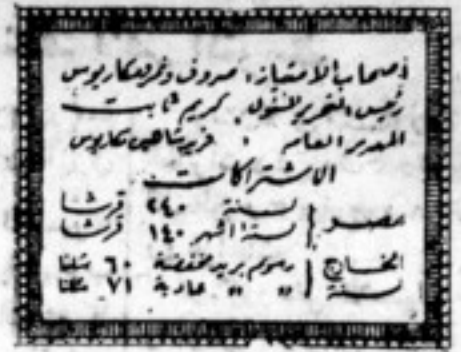 أصحاب الامتياز: صروف ونمر ومكاريوس
رئيس التحرير المسئول . كريم ثابت
المدير العام : فريد شاهين مكاريوس
الاشتراكات
مصر { لسنة ٢٤٠ قرشا
لستة اشهر ١٤٠ قرشا
الخارج { رسوم بريد مخفضة ٦٠ شلنا
سنة " " عادية ٧١ شلنا